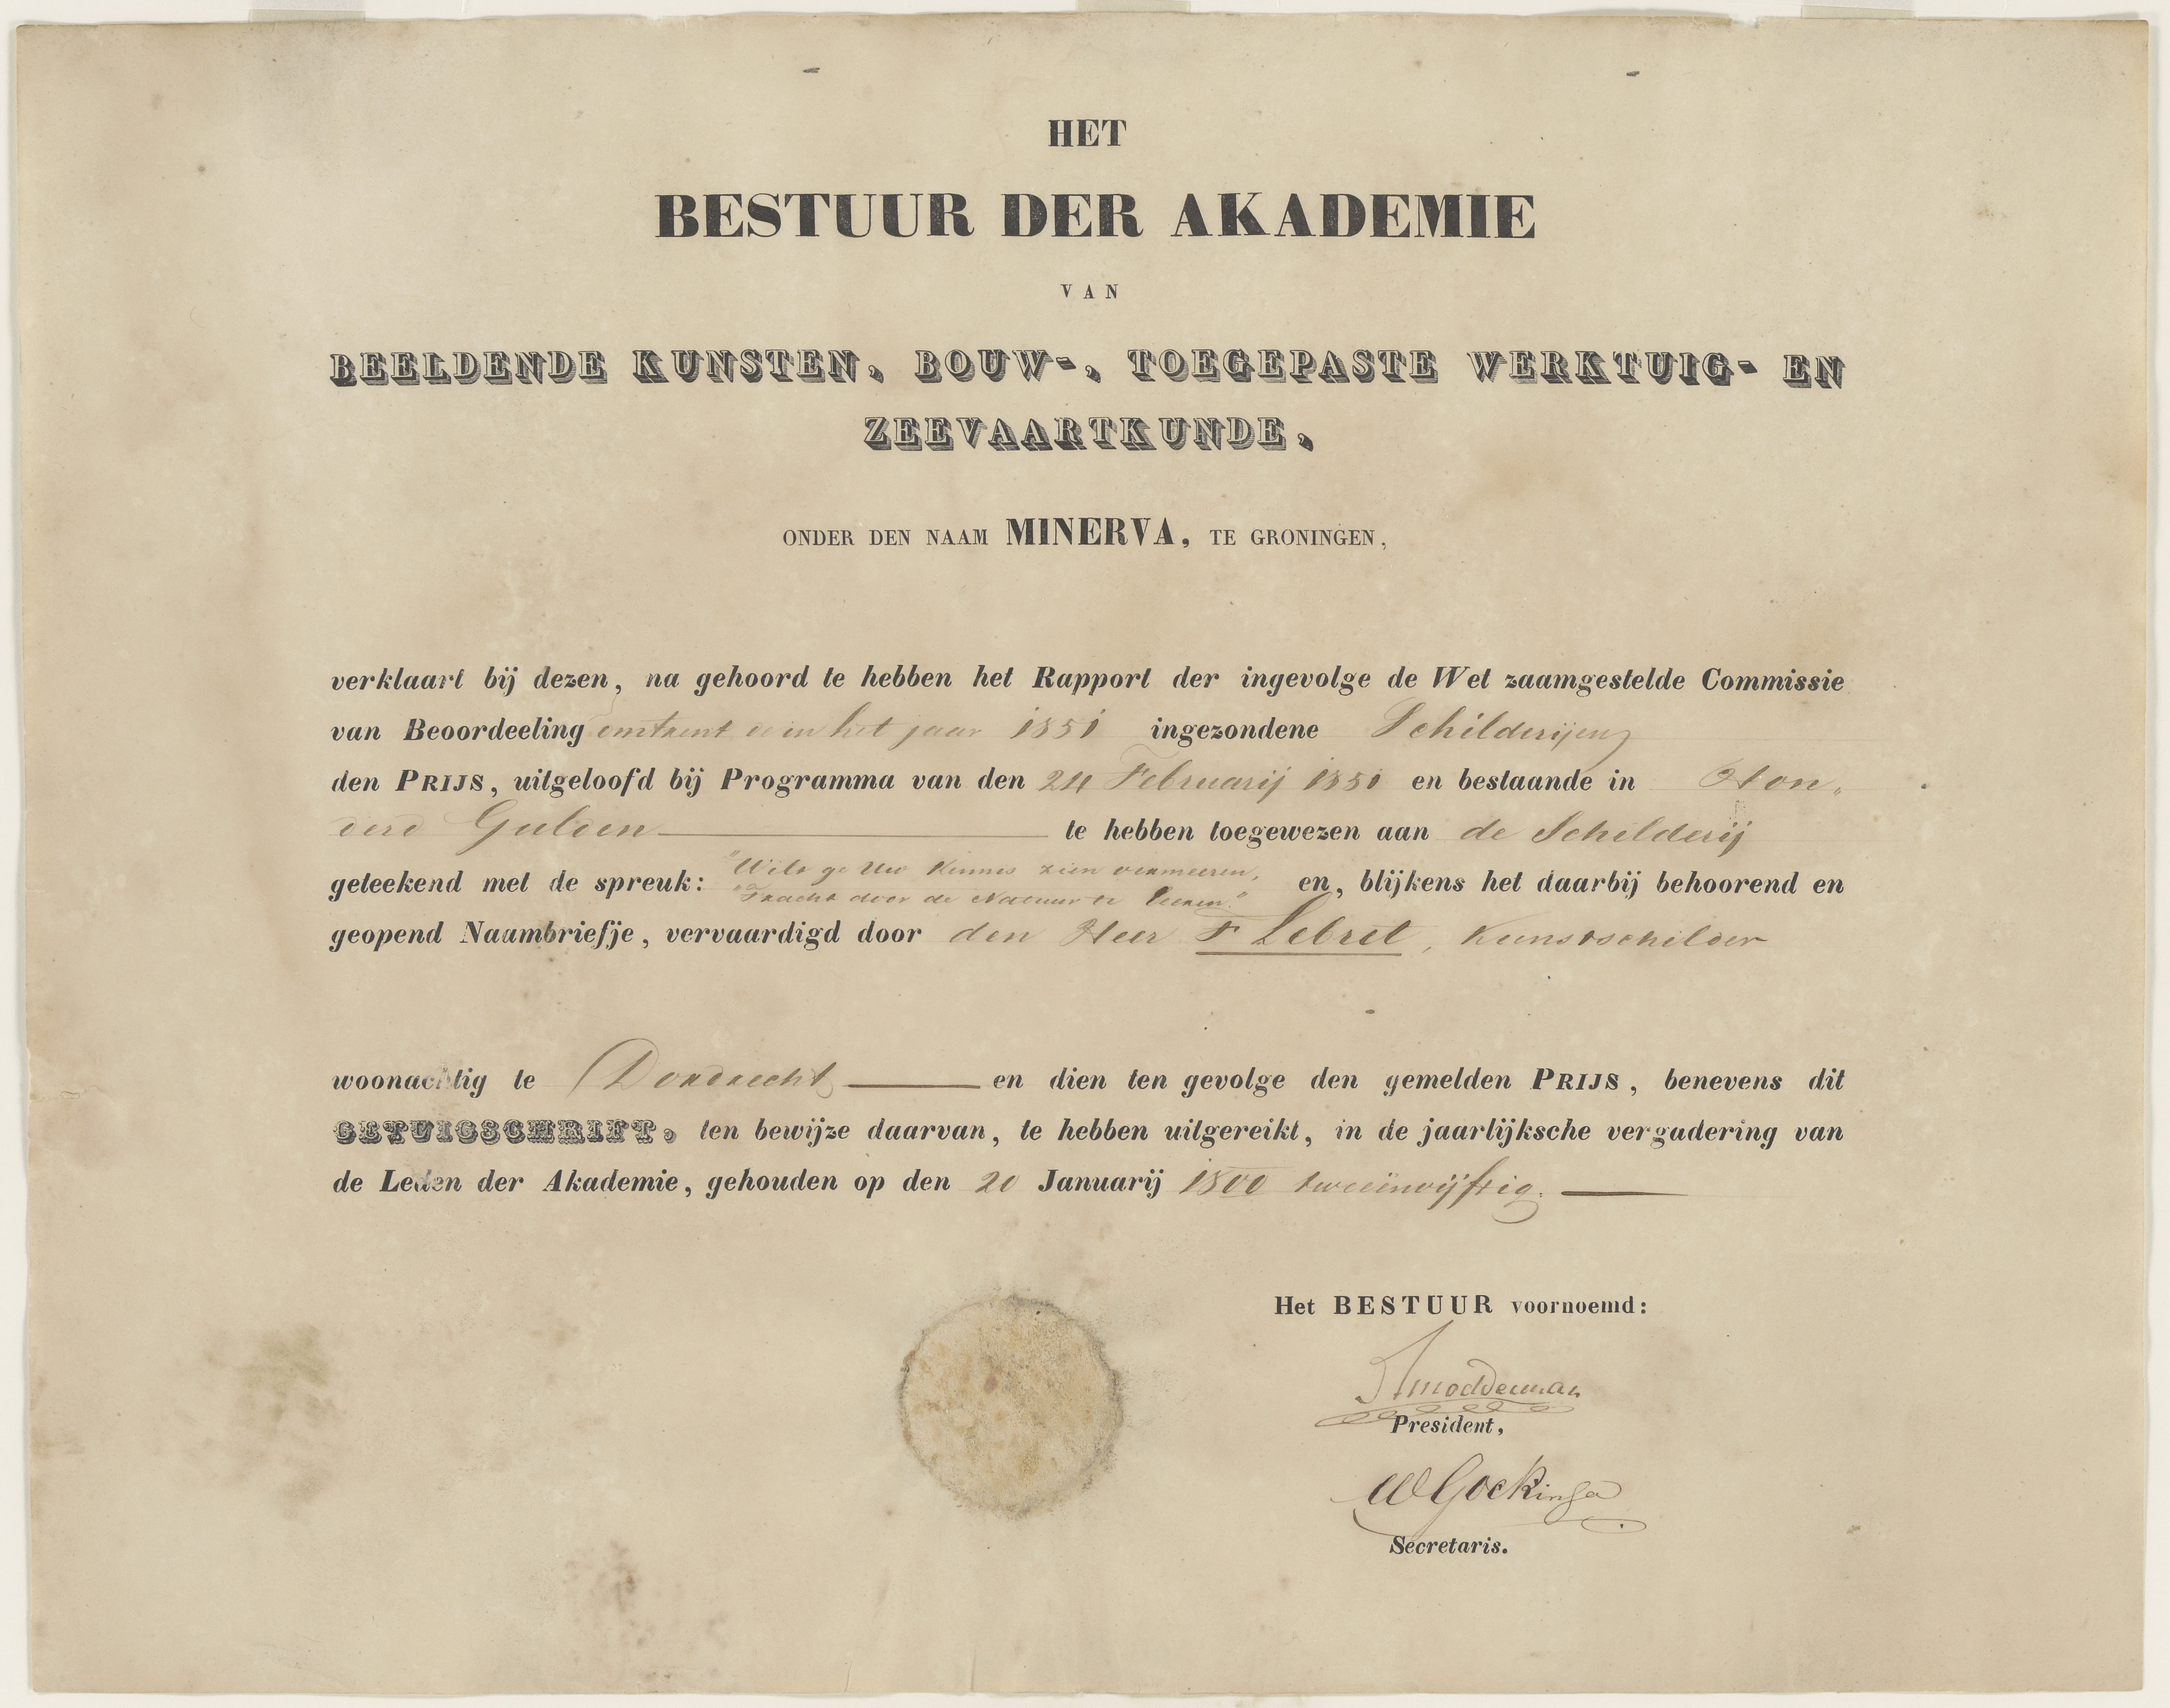 HET
BESTUUR DER AKADEMIE
VAN
BEELDENDE KUNSTEN, BOUW-, TOEGEPASTE WERKTUIG- EN
ZEEVAARTKUNDE,
ONDER DEN NAAM MINERVA, TE GRONINGEN,
verklaart bij dezen, na gehoord te hebben het Rapport der ingevolge de Wet zaamgestelde Commissie
van Beoordeeling omtrent de in het jaar 1851 ingezondene Schilderijen
den PRIJS, uitgeloofd bij Programma van den 24 Februarij 1851 en bestaande in Hon„
derd Gulden te hebben toegewezen aan de Schilderij
geteekend met de spreuk: "Wilt ge Uw Kennis zien vermeeren,
"Tracht door de Natuur te leeren." en, blijkens het daarbij behoorend en
geopend Naambriefje, vervaardigd door den Heer F Lebret, Kunstschilder
woonachtig te Dordrecht en dien ten gevolge den gemelden PRIJS, benevens dit
GETUIGSCHRIFT, ten bewijze daarvan, te hebben uitgereikt, in de jaarlijksche vergadering van
de Leden der Akademie, gehouden op den 20 Januarij 1800 tweeënvijftig.
Het BESTUUR voornoemd:
Modderman
President,
W Gockinga
Secretaris.